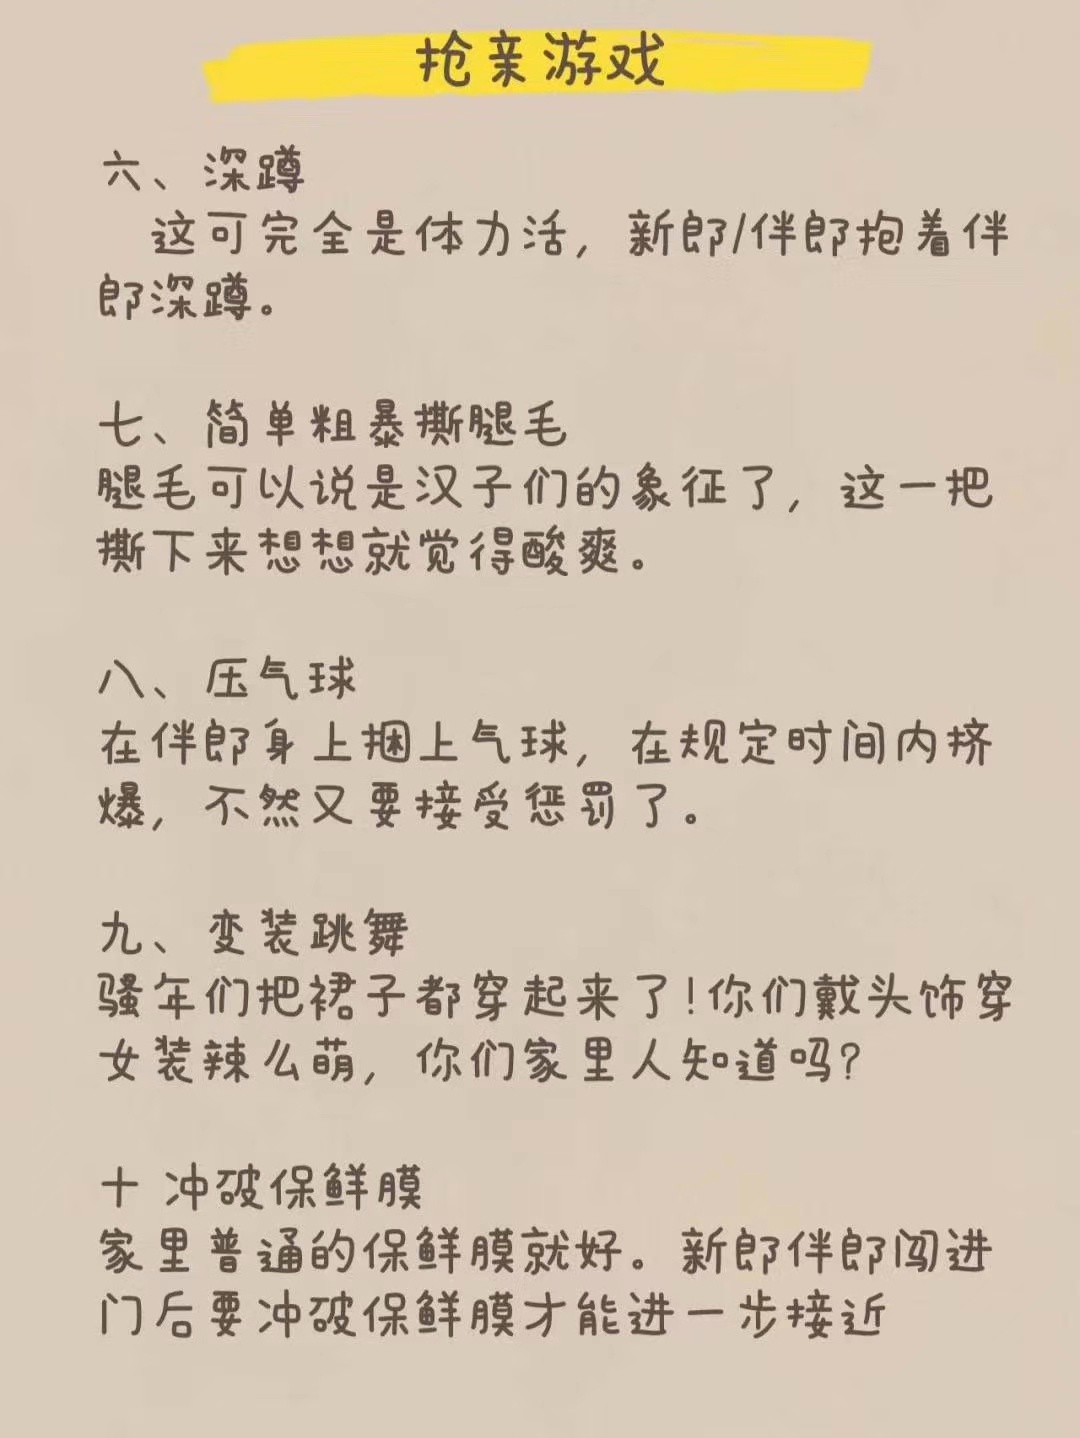 抢亲游戏
六、深蹲
这可完全是体力活，新郎/伴郎抱着伴
郎深蹲。
七、简单粗暴撕腿毛
腿毛可以说是汉子们的象征了，这一把
撕下来想想就觉得酸爽。
八、压气球
在伴郎身上捆上气球，在规定时间内挤
爆，不然又要接受惩罚了。
九、变装跳舞
骚年们把裙子都穿起来了!你们戴头饰穿
女装辣么萌，你们家里人知道吗?
十 冲破保鲜膜
家里普通的保鲜膜就好。新郎伴郎闯进
门后要冲破保鲜膜才能进一步接近